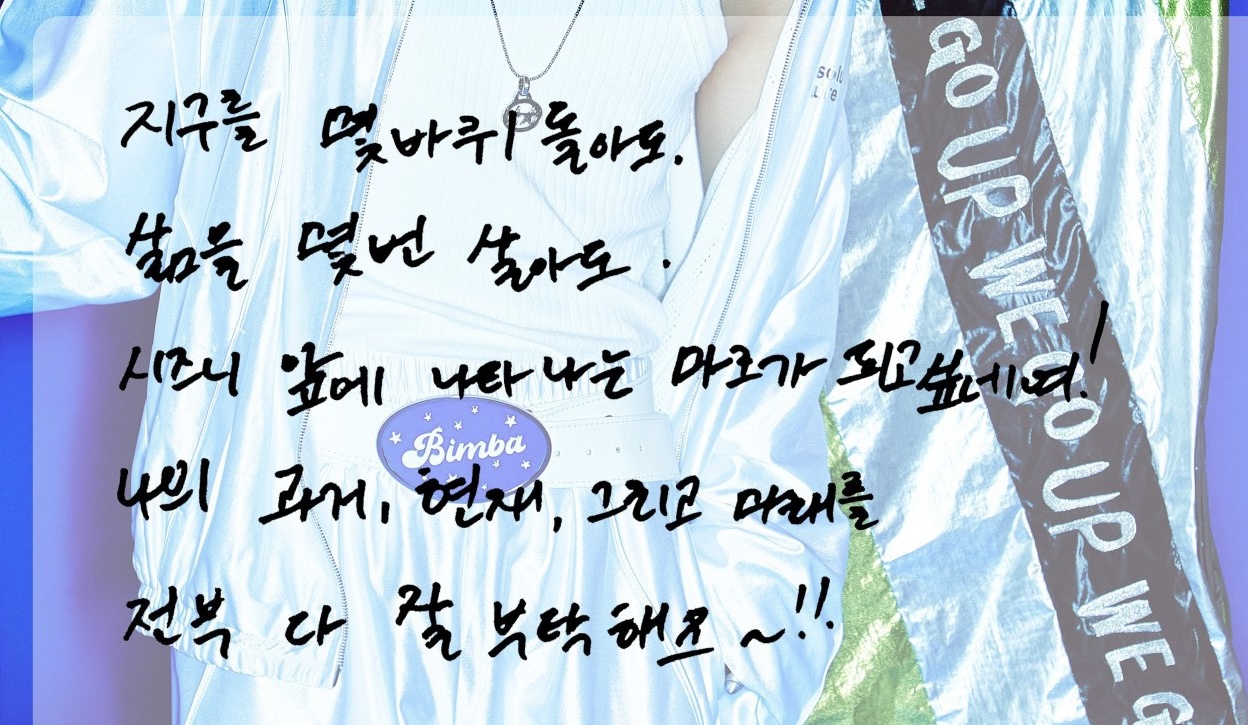 지구를 몇바퀴 돌아도.
삶을 몇번 살아도.
시즈니 앞에 나타나는 마크가 되고싶네여!
나의 과거, 현재, 그리고 미래를
전부 다 잘 부탁해요~!!
Bimba
GO UP WE GO UP WE G